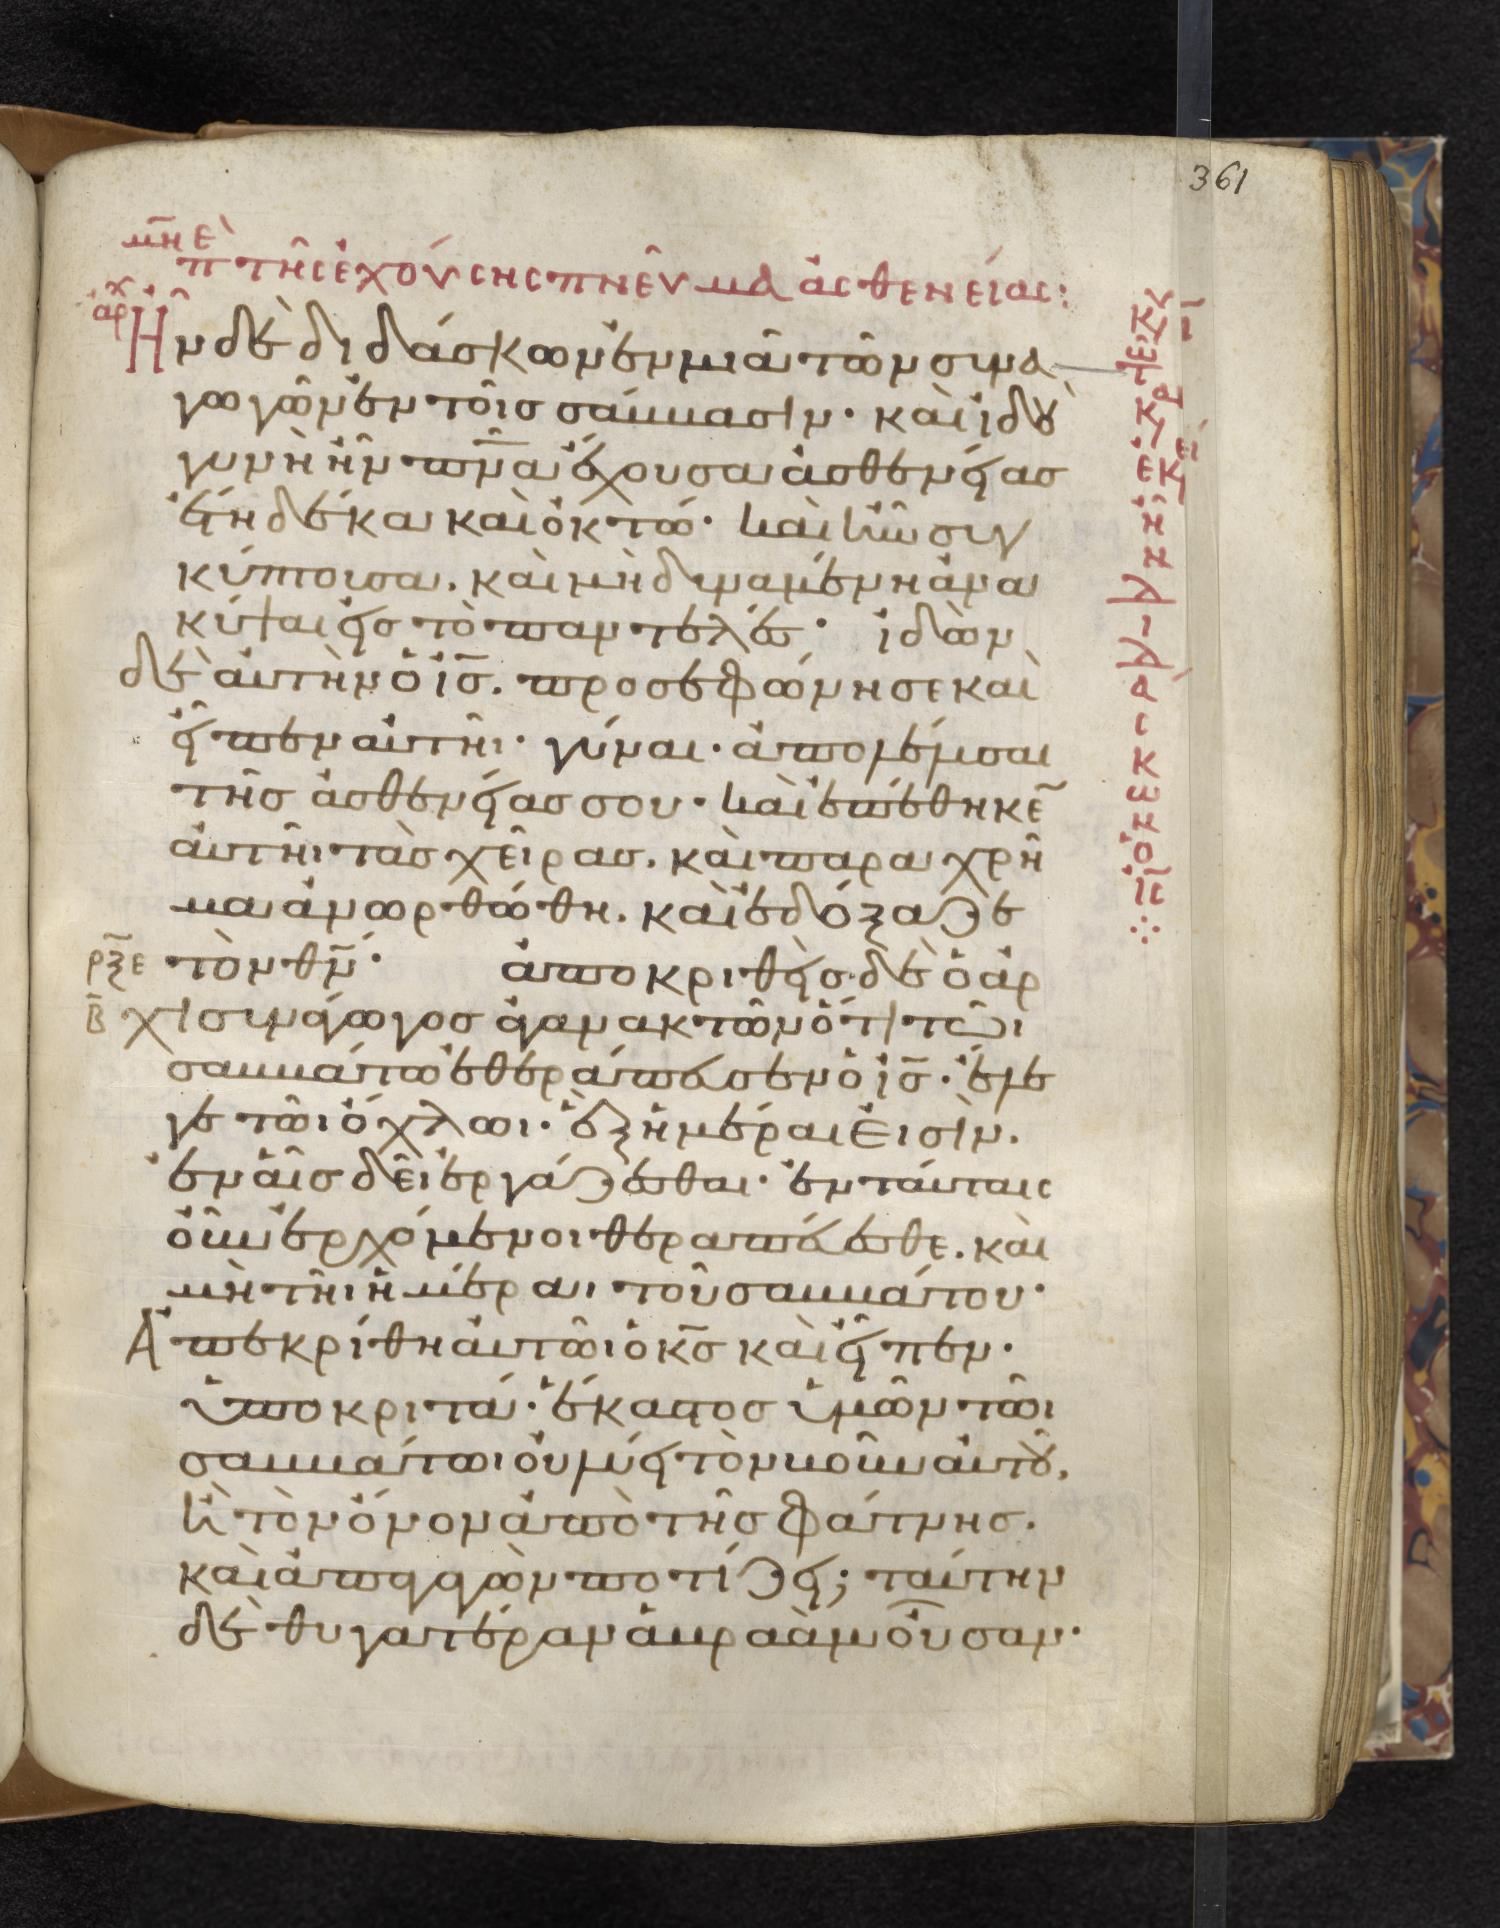 361
μη̅ ὲ
π τῆς ἐχούσης πνεῦμα ἀσθενείας:
ἀρχ
Ἦν δὲ διδάσκων ἐν μιᾶ τῶν συνα
γωγῶν ἐν τοῖς σάββασιν· καὶ ἰδοὺ
γυνὴ ἦν πν̅α ἔχουσα ἀσθενείας
ἔτη δέκα καὶ ὀκτώ· καὶ ἦν συγ
κύπτουσα. καὶ μὴ δυναμένη ἀνα
κύψαι εἰς τὸ παντελές· ἰδὼν
δὲ αὐτὴν ὁ ἰς̅. προσεφώνησε καὶ
εἶπεν αὐτῆι· γύναι· ἀπολέλυσαι
τῆς ἀσθενείας σου· καὶ ἐπέθηκε̅
αὐτῆι τὰς χεῖρας. καὶ παραχρῆ
μα ἀνωρθώθη. καὶ ἐδόξαζε
ρξε τὸν θν̅· ἀποκριθεὶς δὲ ὁ ἀρ
β̅ χισυνάγωγος ἀγανακτῶν ὅτι τῶι
σαββάτω ἐθεράπευσεν ὁ ἰς̅· ἔλε
γε τῶι ὄχλωι· ἓξ ἡμέραι εἰσὶν.
ἐν αἷς δεῖ ἐργάζεσθαι· ἐν ταύταις
οὖν ἐρχόμενοι θεραπεύεσθε. καὶ
μὴ τῆι ἡμέραι τοῦ σαββάτου·
Ἀπεκρίθη αὐτῶι ὁ κς̅ καὶ εἶπεν·
ὑποκριτά· ἕκαστος ὑμῶν τῶι
σαββάτωι οὐ λύει τὸν βοῦν αὐτοῦ,
ἢ τὸν ὄνον ἀπὸ τῆς φάτνης.
καὶ ἀπαγαγὼν ποτίζει; ταύτην
δὲ θυγατέραν ἀβραὰμ οὖσαν·